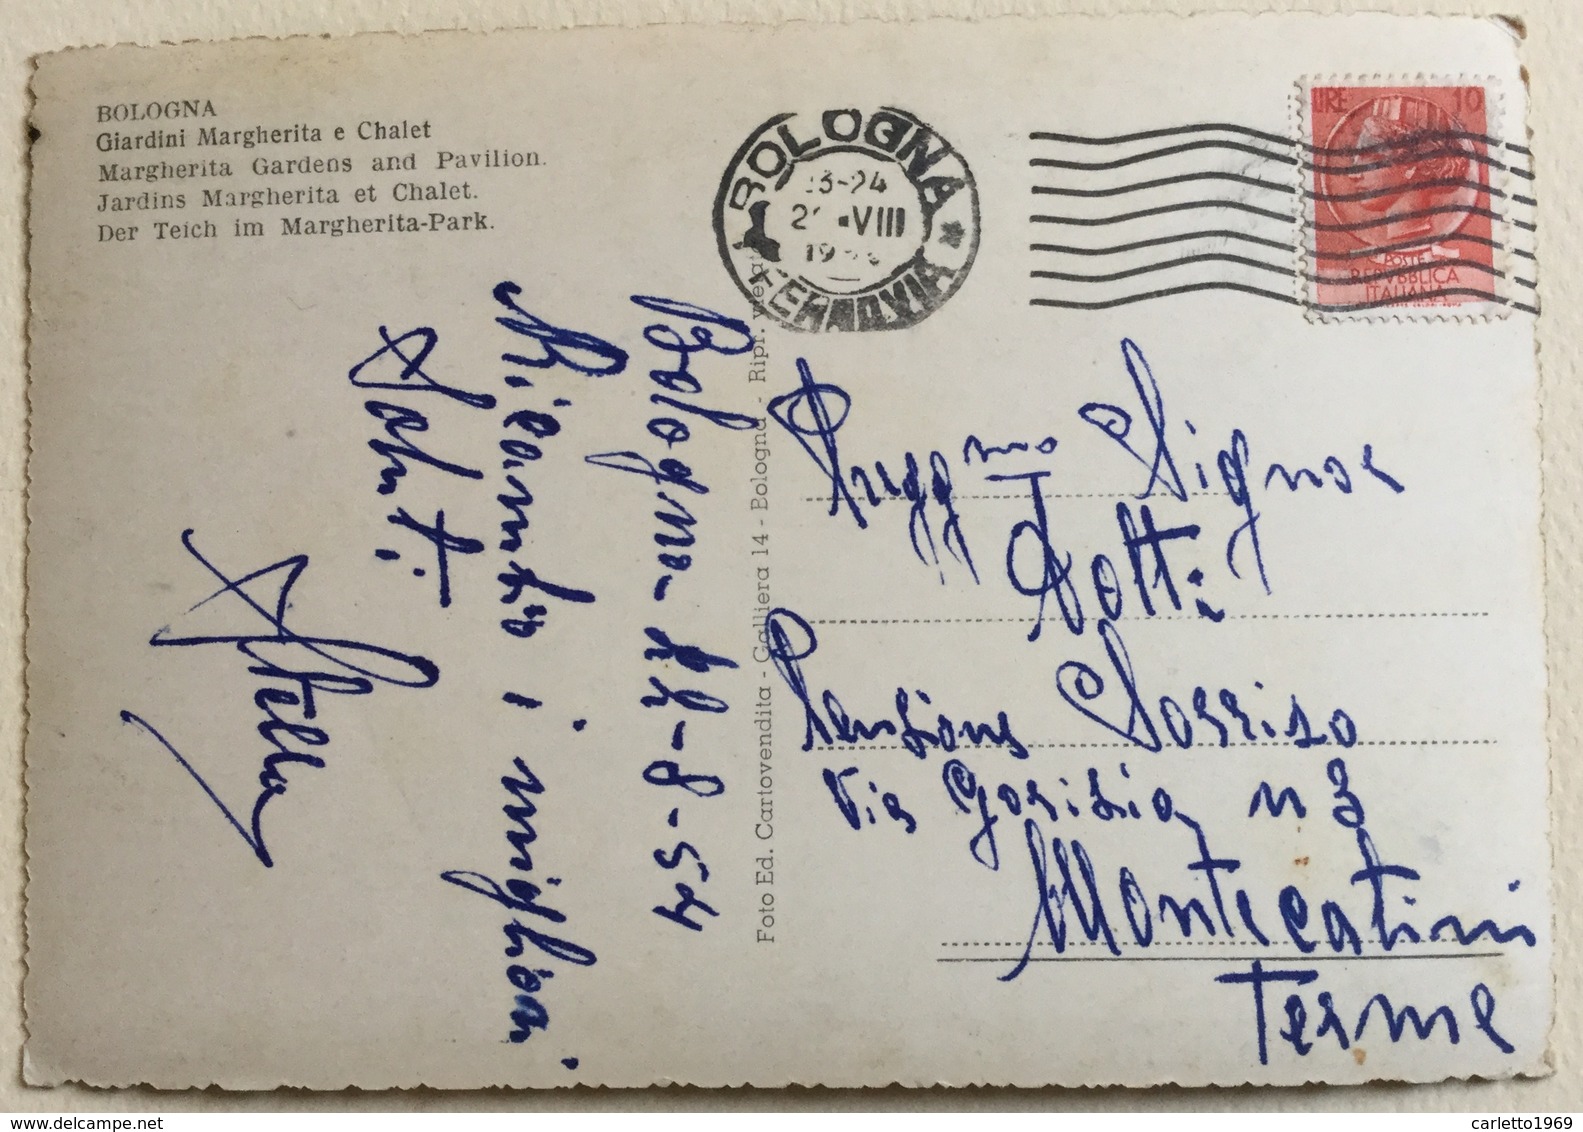 BOLOGNA
Giardini Margherita e Chalet
Margherita Gardens and Pavilion.
Jardins Margherita et Chalet.
Der Teich im Margherita-Park.
BOLOGNA
3-24
VIII
FERROVIA
LIRE 10
POSTE
REPVBBLICA
ITALIANA
Foto Ed. Cartovendita - Galliera 14 - Bologna - Ripr. vietata
Bologna 22-8-54
Ricambio i migliori
saluti.
Stella
Preggmo Signor
Dotti
Pensione Sorriso
Via Gorizia n 3
Montecatini
Terme
carletto1969